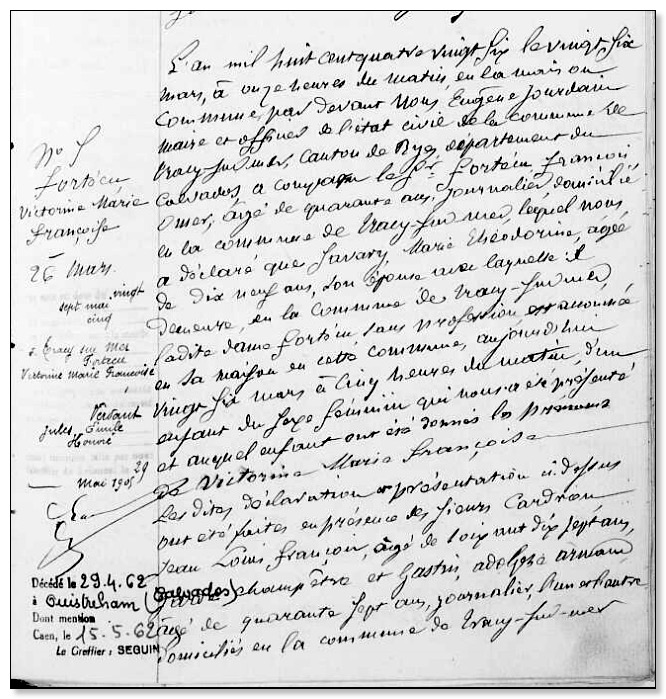 L'an mil huit cent quatre vingt six le vingt six
mars, à onze heures du matin en la maison
commune, par devant Nous Eugène Jourdain
maire et officier de l'état civil de la commune de
Tracy-sur-mer, canton de Ryes département du
Calvados a comparu le Sr. Fortécu François
Omer, âgé de quarante ans, journalier domicilié
en la commune de Tracy-sur mer, lequel nous
a déclaré que Savary, Marie Théodorine, âgée
de dix neuf ans, son épouse avec laquelle il
demeure, en la commune de Tracy-sur mer
ladite dame Fortécu sans profession est accouchée
en sa maison en cette commune, aujourd'hui
vingt six mars à cinq heures du matin, d'un
enfant du sexe féminin qui nous a été présenté
et auquel enfant ont été donnés les prénoms
de Victorine Marie Françoise
Les dites déclaration et présentation ci-dessus
ont été faites en présence des sieurs Cardron
Jean Louis François, âgé de soixant dix sept ans,
garde champêtre et Gastin, adolphe armand
âgé de quarante sept ans, journalier, l'un et l'autre
domiciliés en la commune de Tracy-sur-mer
No 5
Fortécu
Victorine Marie
Françoise
26 Mars.
vingt
sept mai
cinq
à Tracy sur Mer
Fortecu
Victorine Marie Françoise
Jules Emile
Honoré
29
Mai 1905
Décédé le 29.4.62
à Ouistreham (Calvados)
Dont mention
Caen, le 15.5.62
Le Greffier : SEGUIN